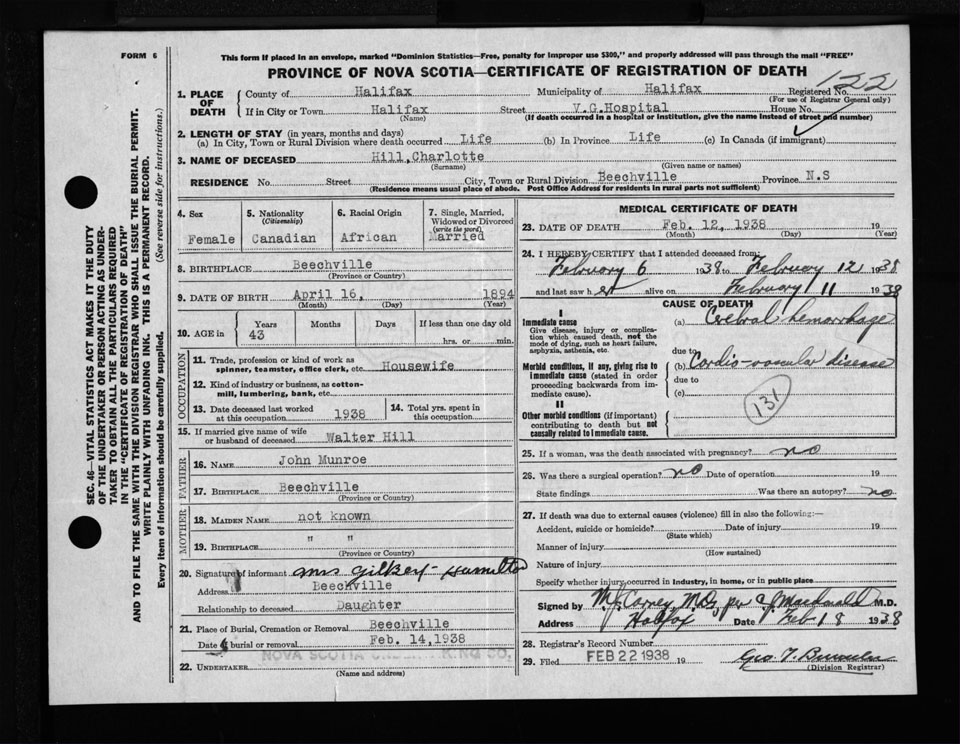 FORM 6
This form if placed in an envelope, marked "Dominion Statistics—Free, penalty for improper use $300," and properly addressed will pass through the mail "FREE"
PROVINCE OF NOVA SCOTIA—CERTIFICATE OF REGISTRATION OF DEATH
122
1. PLACE OF DEATH
County of Halifax Municipality of Halifax Registered No.
(For use of Registrar General only)
If in City or Town Halifax Street V.G.Hospital House No.
(Name) (If death occurred in a hospital or institution, give the name instead of street and number)
2. LENGTH OF STAY (in years, months and days)
(a) In City, Town or Rural Division where death occurred Life (b) In Province Life (c) In Canada (if immigrant)
3. NAME OF DECEASED Hill, Charlotte
(Surname) (Given name or names)
RESIDENCE No. Street City, Town or Rural Division Beechville Province N.S
(Residence means usual place of abode. Post Office Address for residents in rural parts not sufficient)
4. Sex Female
5. Nationality (Citizenship) Canadian
6. Racial Origin African
7. Single, Married, Widowed or Divorced (write the word) Married
8. BIRTHPLACE Beechville
(Province or Country)
9. DATE OF BIRTH April 16, 1894
(Month) (Day) (Year)
10. AGE in Years Months Days If less than one day old
43 hrs. or min.
OCCUPATION
11. Trade, profession or kind of work as spinner, teamster, office clerk, etc. Housewife
12. Kind of industry or business, as cotton-mill, lumbering, bank, etc.
13. Date deceased last worked at this occupation 1938
14. Total yrs. spent in this occupation
15. If married give name of wife or husband of deceased Walter Hill
FATHER
16. NAME John Munroe
17. BIRTHPLACE Beechville
(Province or Country)
MOTHER
18. MAIDEN NAME not known
19. BIRTHPLACE " "
(Province or Country)
20. Signature of informant Mrs Gilbert Hamilton
Address Beechville
Relationship to deceased Daughter
21. Place of Burial, Cremation or Removal Beechville
Date of burial or removal Feb. 14,1938
22. UNDERTAKER NOVA SCOTIA UNDERTAKING CO.
(Name and address)
MEDICAL CERTIFICATE OF DEATH
23. DATE OF DEATH Feb. 12, 1938 19
(Month) (Day) (Year)
24. I HEREBY CERTIFY that I attended deceased from
February 6 1938 to February 12 1938
and last saw her alive on February 11 1938
CAUSE OF DEATH
I
Immediate cause
Give disease, injury or complication which caused death, not the mode of dying, such as heart failure, asphyxia, asthenia, etc.
(a) Cerebral hemorrhage
due to
Morbid conditions, if any, giving rise to immediate cause (stated in order proceeding backwards from immediate cause).
(b) Cardio-vascular disease
due to
(c)
131
II
Other morbid conditions (if important) contributing to death but not causally related to immediate cause.
25. If a woman, was the death associated with pregnancy? no
26. Was there a surgical operation? no Date of operation 19
State findings Was there an autopsy? no
27. If death was due to external causes (violence) fill in also the following:—
Accident, suicide or homicide? Date of injury 19
(State which)
Manner of injury
(How sustained)
Nature of injury
Specify whether injury occurred in industry, in home, or in public place
Signed by M.D.
Address Halifax Date Feb 18 1938
28. Registrar's Record Number
29. Filed FEB 22 1938 19
(Division Registrar)
SEC. 46—VITAL STATISTICS ACT MAKES IT THE DUTY
OF THE UNDERTAKER OR PERSON ACTING AS UNDER-
TAKER TO OBTAIN ALL THE PARTICULARS REQUIRED
IN THE "CERTIFICATE OF REGISTRATION OF DEATH"
AND TO FILE THE SAME WITH THE DIVISION REGISTRAR WHO SHALL ISSUE THE BURIAL PERMIT.
WRITE PLAINLY WITH UNFADING INK. THIS IS A PERMANENT RECORD.
Every item of information should be carefully supplied. (See reverse side for instructions.)